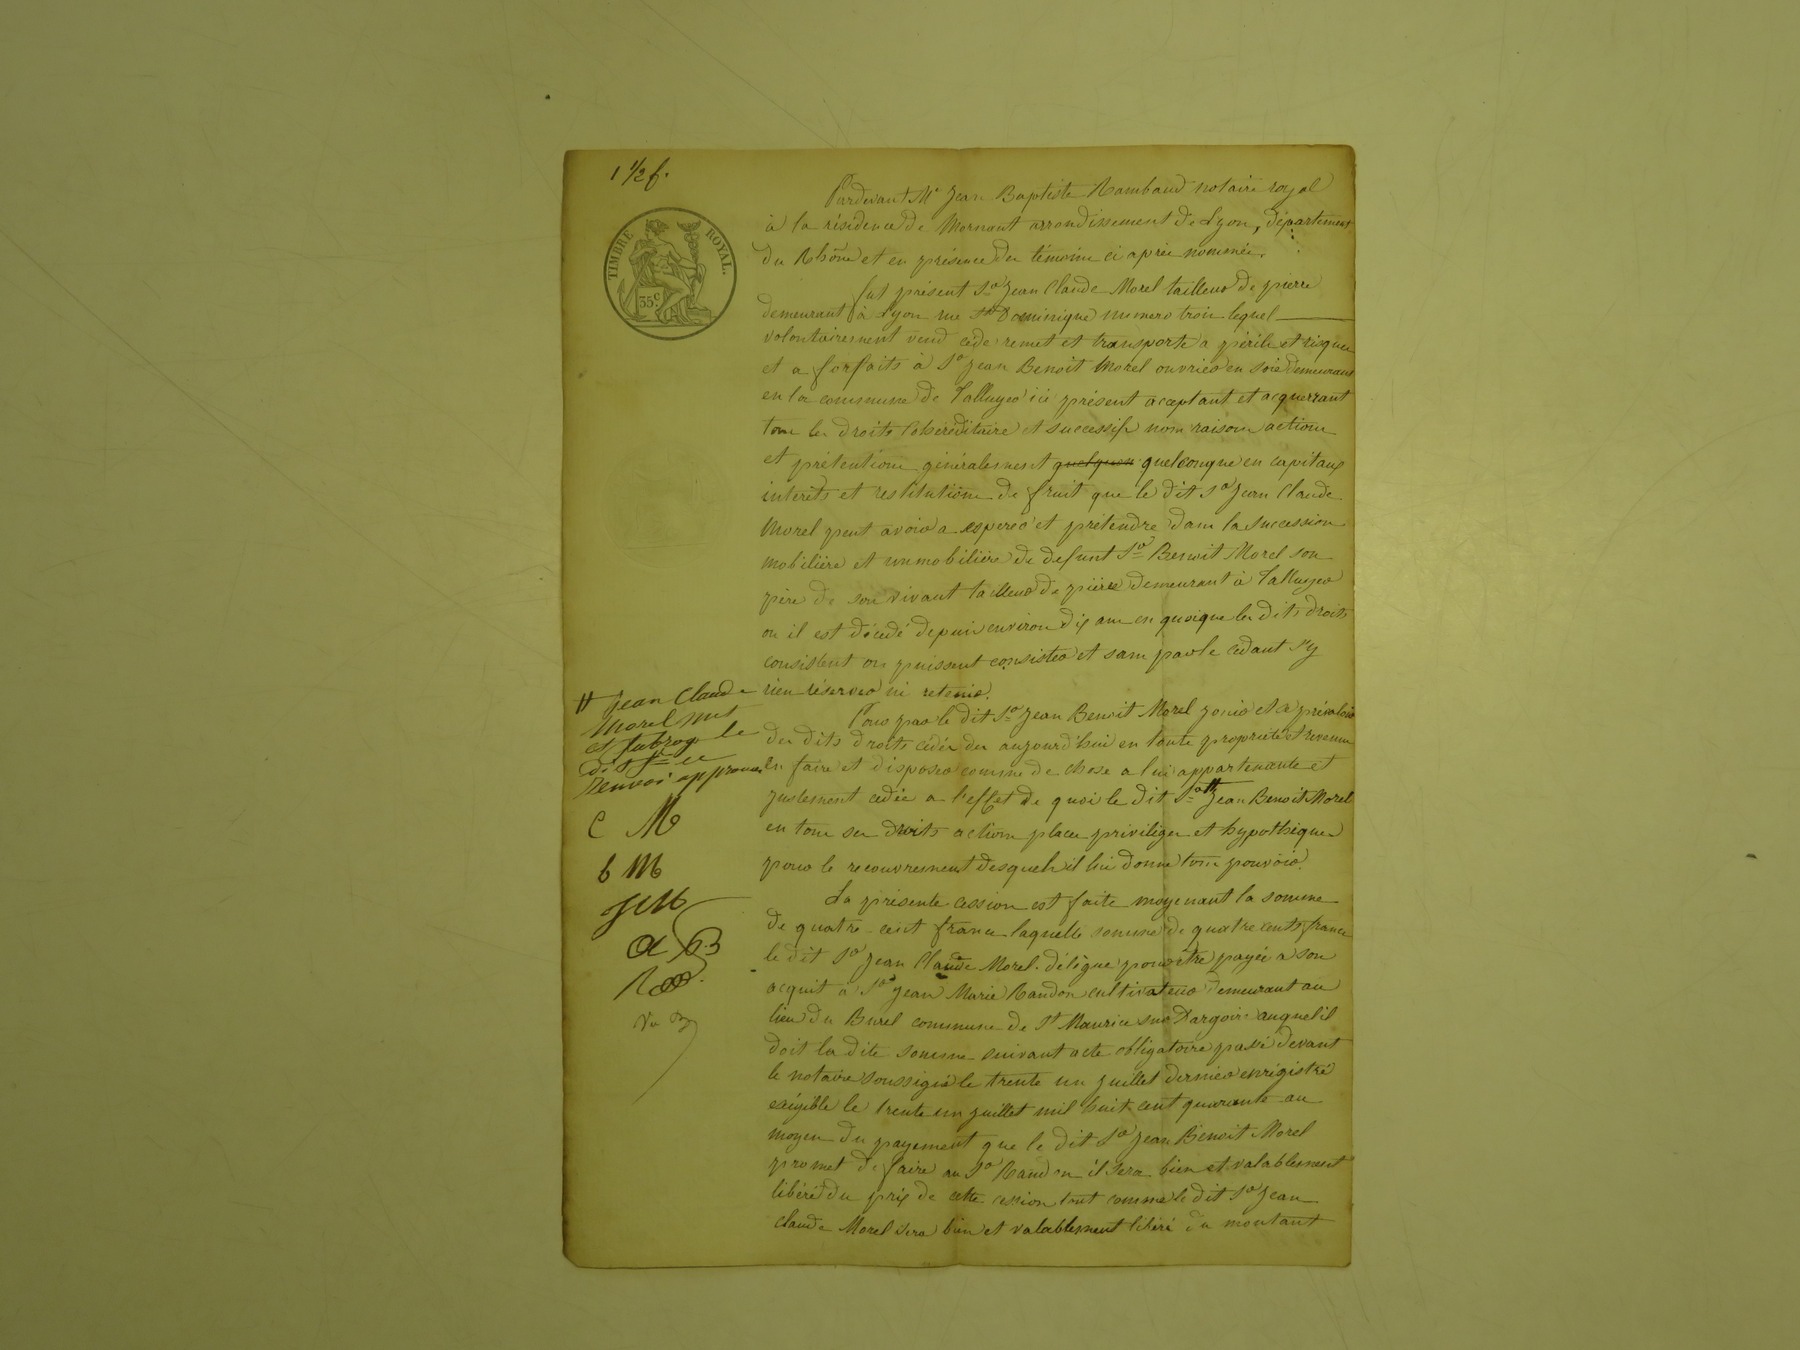 1 1/2 f.
TIMBRE ROYAL.
35 c
Pardevant Me Jean Baptiste Rambaud notaire royal
à la résidence de Mornant arrondissement de Lyon, département
du Rhône et en présence des témoins ci après nommés.
fut présent Sr Jean Claude Morel tailleur de pierre
demeurant à Lyon rue St Dominique numero trois lequel
volontairement vend cede remet et transporte a périls et risques
et a forfaits à Sr Jean Benoit Morel ouvrier en soie demeurant
en la commune de Talluyers ici présent acceptant et acquerrant
tous les droits héréditaires et successifs noms raisons actions
et prétentions généralement quelques quelconque en capitaux
interêts et restitutions de fruit que le dit Sr Jean Claude
Morel peut avoir a esperer et prétendre dans la succession
mobilière et immobilière de defunt Sr Benoit Morel son
père de son vivant tailleur de pierre demeurant à Talluyers
ou il est décédé depuis environ dix ans en quoique les dits droits
consistent ou puissent consister et sans par le cedant s'y
rien réserver ni retenir.
Pour par le dit Sr Jean Benoit Morel jouir et se prévaloir
des dits droits cédés des aujourd'hui en toute propriété et revenus
en faire et disposer comme de chose a lui appartenante et
justement cedée a l'effet de quoi le dit Sr # Jean Benoit Morel
en tous ses droits actions places priviliges et hypothèques
pour le recouvrement desquels il lui donne tous pouvoir.
La présente cession est faite moyenant la somme
de quatre cent francs laquelle somme de quatre cents francs
le dit Sr Jean Claude Morel délègue pour être payée a son
acquit a Sr Jean Marie Raudon cultivateur demeurant au
lieu du Burel commune de St Maurice sur Dargoire auquel il
doit la dite somme suivant acte obligatoire passé devant
le notaire soussigné le trente un juillet dernier enrégistré
exigible le trente un juillet mil huit cent quarante au
moyen du payement que le dit Sr Jean Benoit Morel
promet de faire au Sr Raudon il sera bien et valablement
libéré du prix de cette cession tout comme le dit Sr Jean
Claude Morel sera bien et valablement libéré du montant
# Jean Claude
Morel met
et subroge le
dit Sr
Renvoi approuvé
C M
b M
JCM